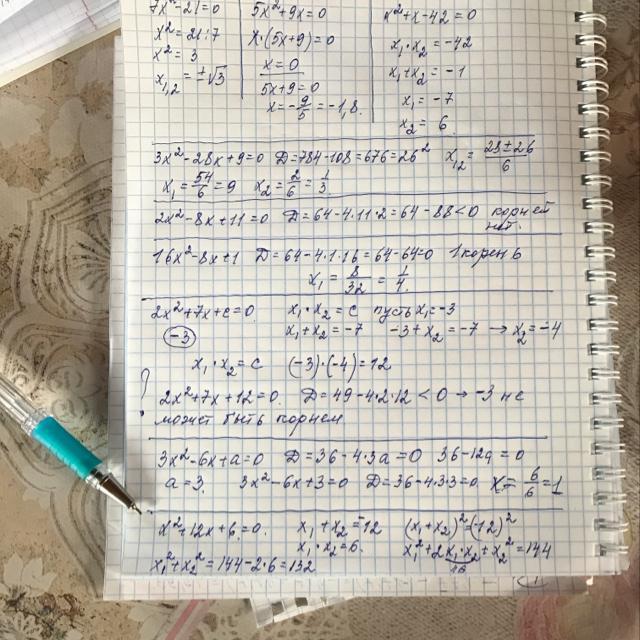 7x²-21=0
x²=21:7
x²=3
x₁,₂=±√3
5x²+9x=0
x·(5x+9)=0
x=0
5x+9=0
x=-9/5=-1,8.
x²+x-42=0
x₁·x₂=-42
x₁+x₂=-1
x₁=-7
x₂=6.
3x²-28x+9=0 D=784-108=676=26² x₁,₂=28±26/6
x₁=54/6=9 x₂=2/6=1/3
2x²-8x+11=0 D=64-4·11·2=64-88<0 корней
нет.
16x²-8x+1 D=64-4·1·16=64-64=0 1 корень
x₁=8/32=1/4.
2x²+7x+c=0. x₁·x₂=c пусть x₁=-3
(-3) x₁+x₂=-7 -3+x₂=-7 → x₂=-4
x₁·x₂=c (-3)·(-4)=12
? 2x²+7x+12=0. D=49-4·2·12<0 → -3 не
может быть корнем
3x²-6x+a=0 D=36-4·3a=0 36-12a=0
a=3. 3x²-6x+3=0 D=36-4·3·3=0. x=6/6=1
x²+12x+6=0. x₁+x₂=-12 (x₁+x₂)²=(-12)²
x₁·x₂=6. x₁²+2x₁·x₂+x₂²=144
x₁²+x₂²=144-2·6=132